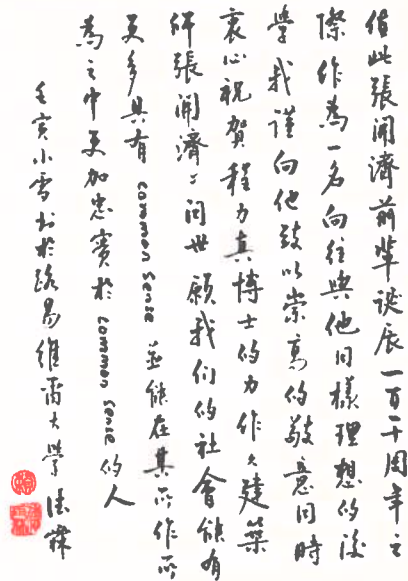 值此張開濟前輩誕辰一百一十周年之
際作為一名向往與他同樣理想的後
學我謹向他致以崇高的敬意同時
衷心祝賀程力真博士的力作《建築
師張開濟》問世願我们的社會能有
更多具有 common sense 並能在其所作所
為之中更加忠實於 common sense 的人
壬寅小雪書於路易維爾大學 德霖